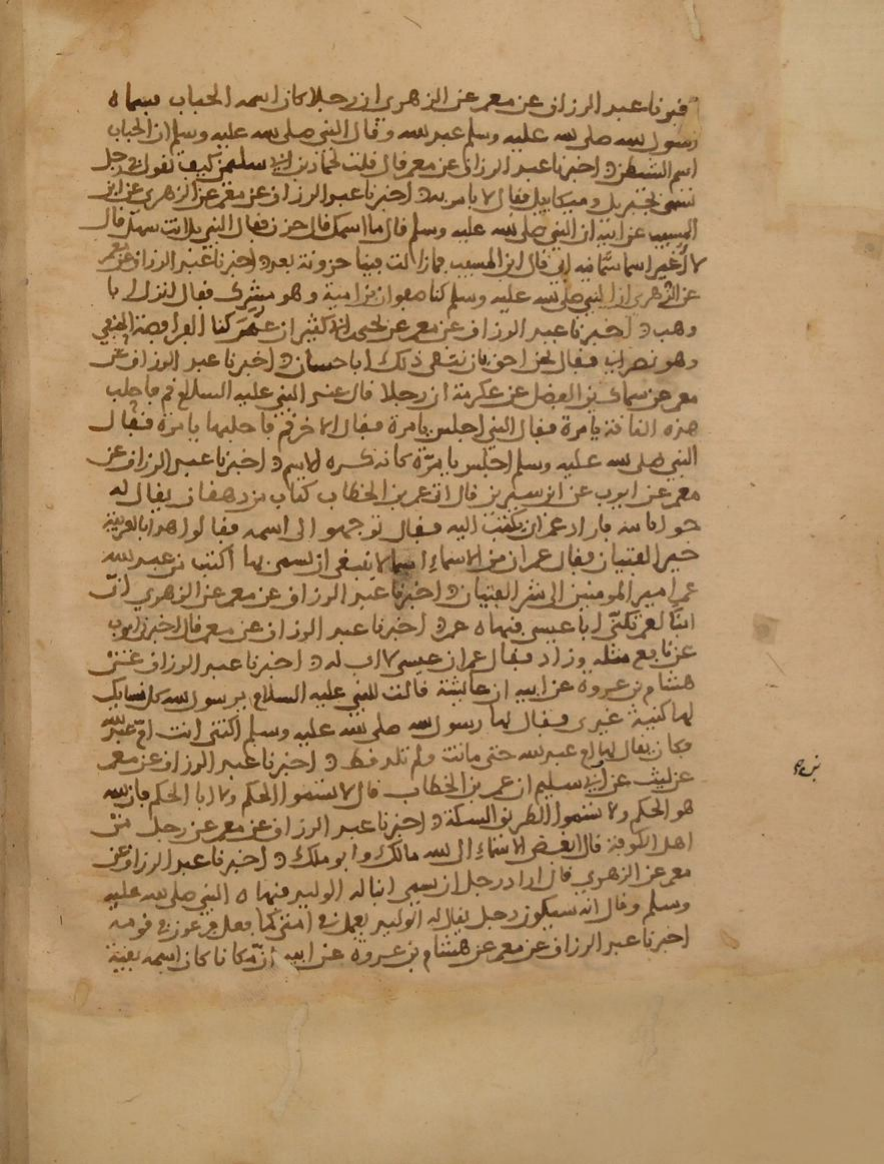 اخبرنا عبد الرزاق عن معمر عن الزهري ان رجلا كان اسمه الحباب فسماه
رسول الله صلى الله عليه وسلم عبد الله وقال النبي صلى الله عليه وسلم ان الحباب
اسم الشيطن اخبرنا عبد الرزاق عن معمر قال قلت لحماد بن ابي سليمن كيف تقول في رجل
تسمى بجبريل وميكاييل فقال لا باس به اخبرنا عبد الرزاق عن معمر عن الزهري عن ابن
المسيب عن ابيه ان النبي صلى الله عليه وسلم قال ما اسمك قال حزن فقال النبي بل انت سهل قال
لا اغير اسما سمانيه ابي قال ابن المسيب فما زالت فينا حزونة بعد اخبرنا عبد الرزاق عن معمر
عن الزهري ان النبي صلى الله عليه وسلم كنا صفوان بن امية وهو مشرك فقال انزل ابا
وهب اخبرنا عبد الرزاق عن معمر عن يحيى بن ابي كثير ان عمر كنا الفرافصة الحنفي
وهو نصراني فقال ابا حسان اخبرنا عبد الرزاق عن
معمر عن سماك بن الفضل عن عكرمة ان رجلا قال عند النبي عليه السلام قم فاحلب
هذه الناقة يا مرة فقال النبي اجلس يا مرة فقال لاخر قم فاحلبها يا مرة فقال
النبي صلى الله عليه وسلم اجلس يا مرة كانه كره الاسم اخبرنا عبد الرزاق عن
معمر عن ايوب عن ابن سيرين قال اتى عمر بن الخطاب كتاب من دهقان يقال له
فاراد عمر ان يكتب اليه فقال ترجموا الي اسمه فقالوا هو بالعربية
خير الفتيان فقال عمر ان من الاسماء اسما لا ينبغي ان يسمى بها اكتب من عبد الله
عمر امير المومنين الى شر الفتيان اخبرنا عبد الرزاق عن معمر عن الزهري ان
ابنا لعمر تكنى ابا عيسى فنهاه عمر اخبرنا عبد الرزاق عن معمر قال اخبرني ايوب
عن نافع مثله وزاد فقال عمر ان عيسى لا اب له اخبرنا عبد الرزاق عن
هشام بن عروة عن ابيه ان عايشة قالت للنبي عليه السلام يرسول الله كل نسايك
لها كنية غيري فقال لها رسول الله صلى الله عليه وسلم اكتني انت ام عبد الله
فكان يقال لها ام عبد الله حتى ماتت ولم تلد قط اخبرنا عبد الرزاق عن معمر
عن ليث عن ابي سليم ان عمر بن الخطاب قال لا تسموا الحكم ولا ابا الحكم فان الله
هو الحكم ولا تسموا الطريق السكة اخبرنا عبد الرزاق عن معمر عن رجل من
اهل الكوفة قال ابغض الاسماء الى الله مالك وابو ملك اخبرنا عبد الرزاق عن
معمر عن الزهري قال اراد رجل ان يسمي ابنا له الوليد فنهاه النبي صلى الله عليه
وسلم وقال انه سيكون رجل يقال له الوليد يعمل في امتي كما فعل فرعون في قومه
اخبرنا عبد الرزاق عن معمر عن هشام بن عروة عن ابيه ان مكانا كان اسمه بقية